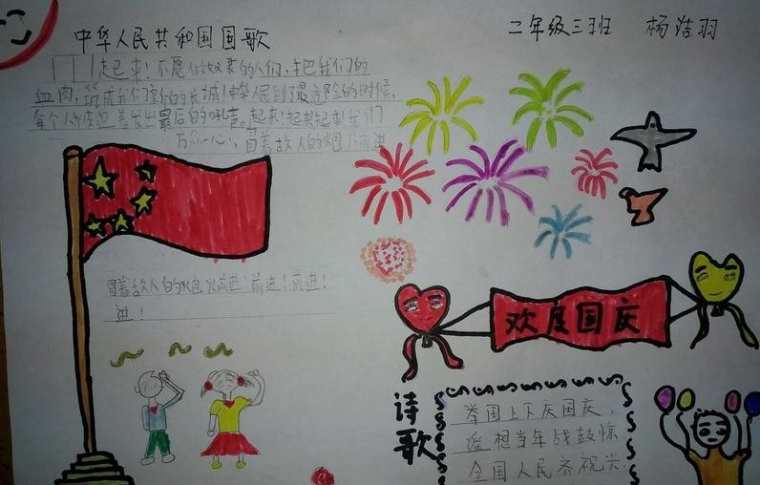 中华人民共和国国歌
二年级三班 杨洁羽
起来!不愿做奴隶的人们,把我们的
血肉,筑成我们新的长城!中华民到了最危险的时候,
每个人被迫着发出最后的吼声。起来!起来!起来!我们
万众一心,冒着敌人的炮火前进
冒着敌人的炮火前进!前进!前进!
进!
欢度国庆
诗歌
举国上下庆国庆,
遥想当年战鼓惊
全国人民齐祝兴